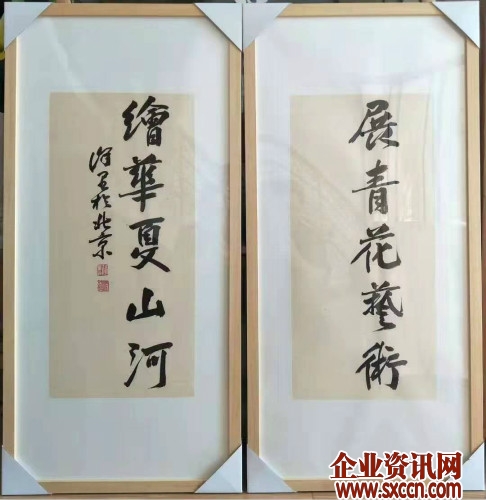 展青花藝術
繪華夏山河
于北京
企业资讯网
www.sxccn.com